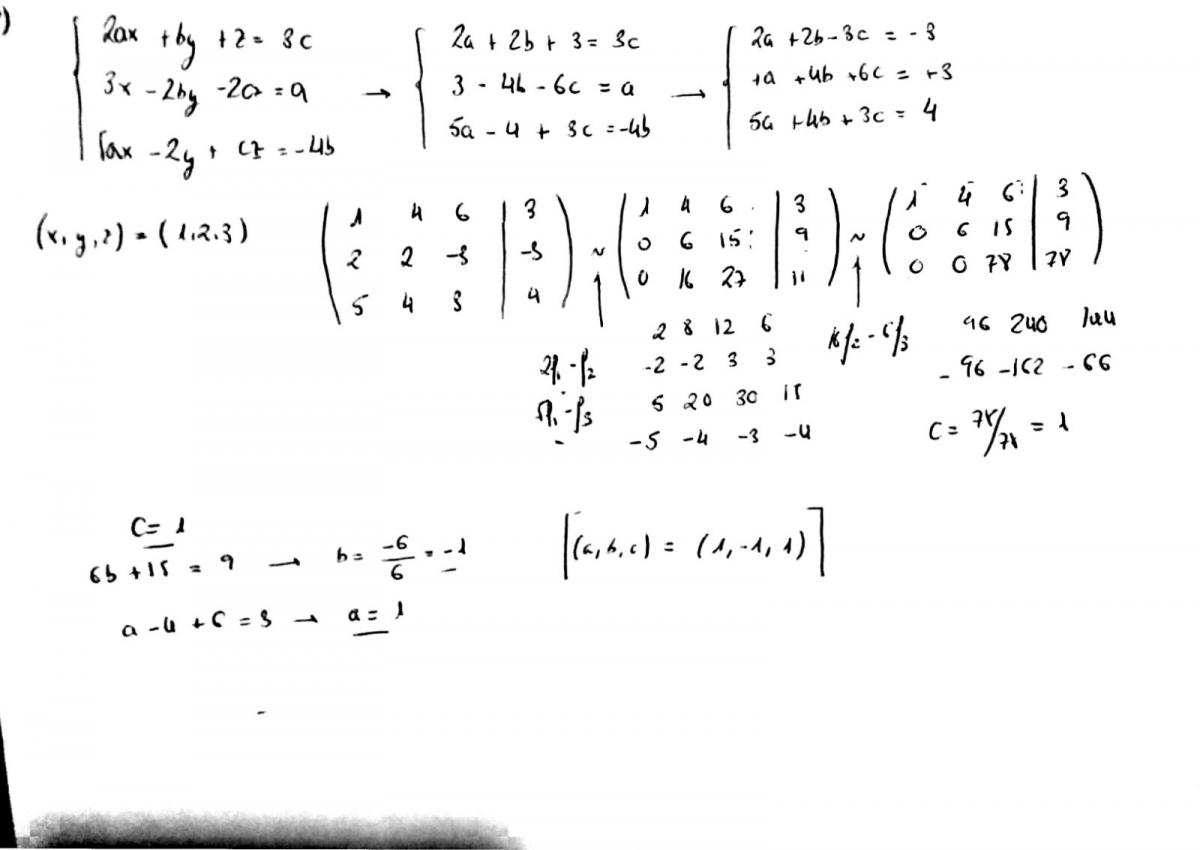 )
2ax + by + z = 3c
3x - 2by - 2cz = a
5ax - 2y + cz = -4b
→
2a + 2b + 3 = 3c
3 - 4b - 6c = a
5a - 4 + 3c = -4b
→
2a + 2b - 3c = -3
+a + 4b + 6c = +3
5a + 4b + 3c = 4
(x, y, z) = (1, 2, 3)
1 4 6 | 3
2 2 -3 | -3
5 4 3 | 4
~
1 4 6 | 3
0 6 15 | 9
0 16 27 | 11
~
1 4 6 | 3
0 6 15 | 9
0 0 78 | 78
2f₁ - f₂
2 8 12 6
-2 -2 3 3
5f₁ - f₃
5 20 30 15
-5 -4 -3 -4
16f₂ - 6f₃
96 240 144
-96 -162 -66
C = 78/78 = 1
C = 1
6b + 15 = 9 → b = -6/6 = -1
a - 4 + 6 = 3 → a = 1
(a, b, c) = (1, -1, 1)